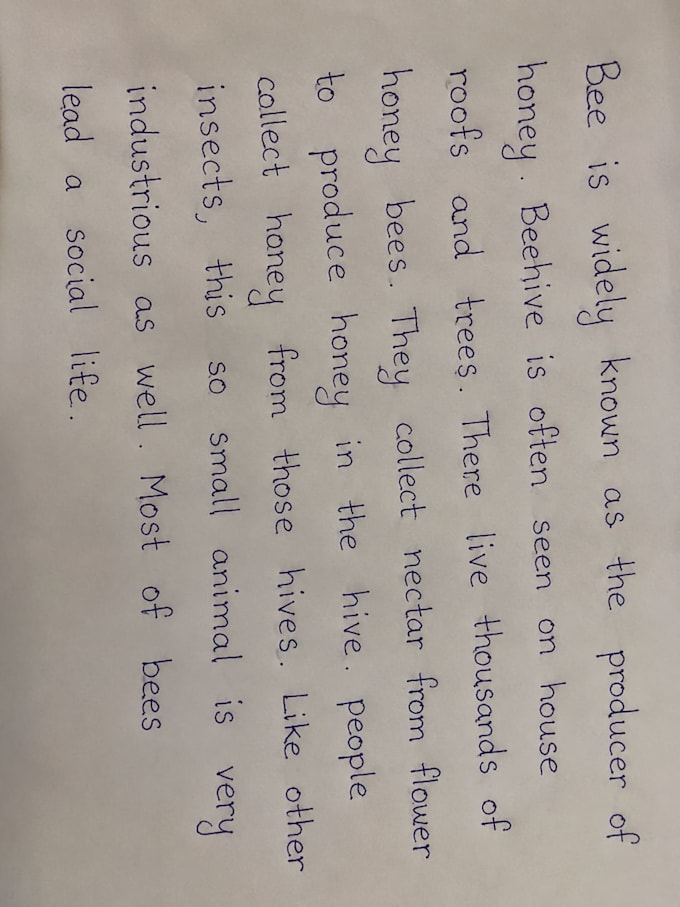 Bee is widely known as the producer of
honey. Beehive is often seen on house
roofs and trees. There live thousands of
honey bees. They collect nectar from flower
to produce honey in the hive. people
collect honey from those hives. Like other
insects, this so small animal is very
industrious as well. Most of bees
lead a social life.